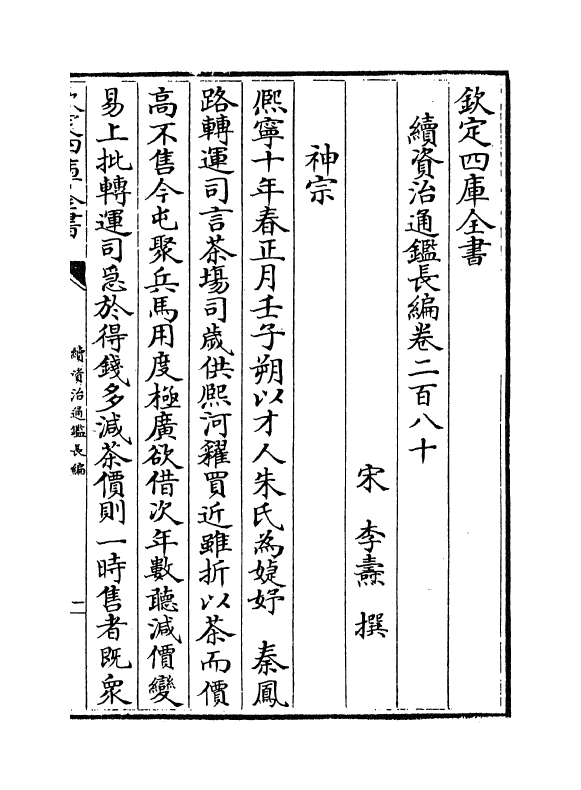 欽定四庫全書
續資治通鑑長編卷二百八十
宋 李燾 撰
神宗
熈寧十年春正月壬子朔以才人朱氏為婕妤 秦鳳
路轉運司言茶塲司歲供熈河糴買近雖折以茶而價
高不售今屯聚兵馬用度極廣欲借次年數聽減價變
易上批轉運司急於得錢多減茶價則一時售者既衆
續資治通鑑長編